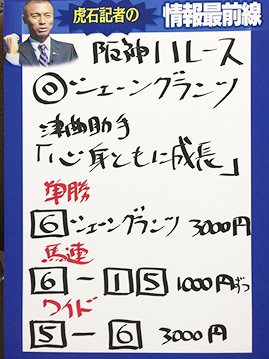 虎石記者の
情報最前線
阪神11レース
◎ジェーングランツ
津曲助手
「心身ともに成長」
単勝
6 ジェーングランツ 3000円
馬連
6-15 1000円ずつ
ワイド
5-6 3000円